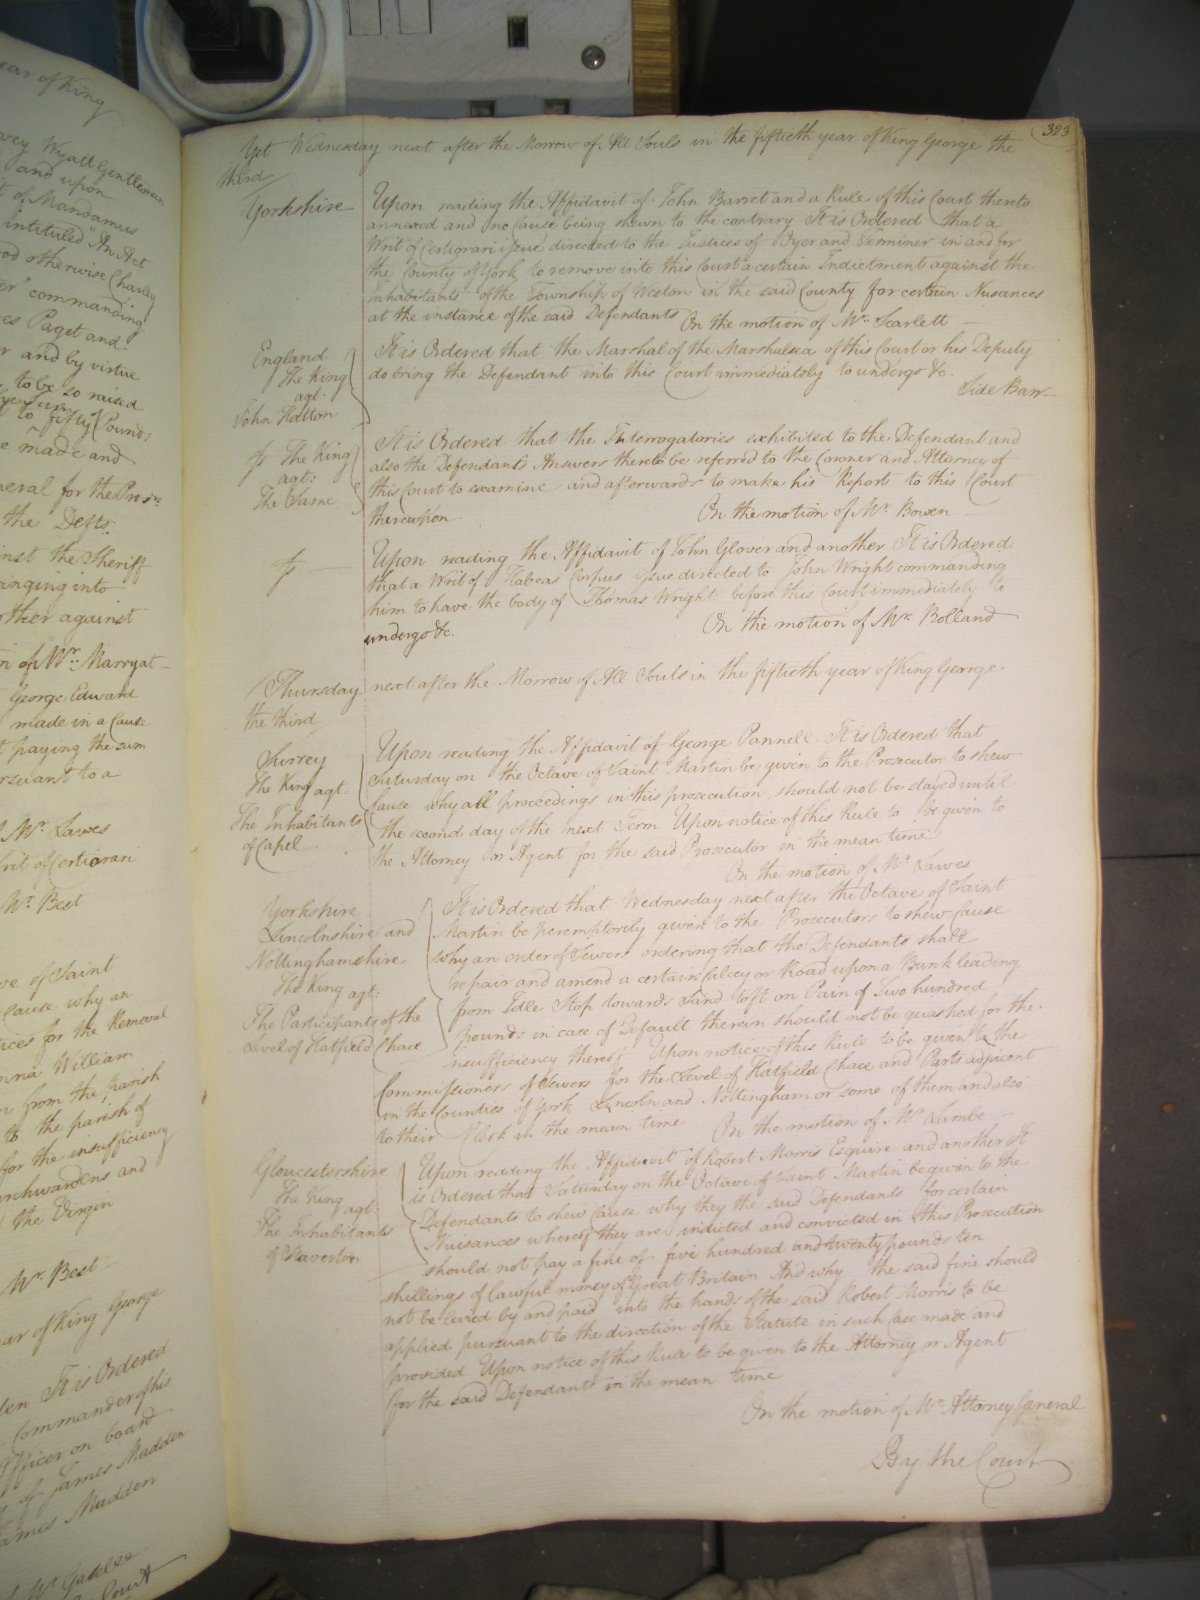 ear of King
vey Wyatt Gentleman
and upon
t of Mandamus
intituled "An Act
ood otherwise Charley
er" commanding
es Paget and
r and by virtue
to be so raised
to fifty Pounds
e made and
neral for the Prosrs
the Defts.
inst the Sheriff
ringing into
other against
n of Mr. Marryat
George Edward
made in a Cause
t paying the sum
rsuant to a
d Mr. Lawes
Writ of Certiorari
Mr. Best
ve of Saint
Cause why an
tices for the Removal
nna William
n from the parish
to the parish of
for the insufficiency
urchwardens and
f the Virgin
Mr. Best
ear of King George
den It is Ordered
Commander of his
Officer on board
y of James Madden
James Madden
Mr. Gaselee
Court
323
Yet Wednesday next after the Morrow of All Souls in the fiftieth year of King George the
third
Yorkshire Upon reading the Affidavit of John Barret and a Rule of this Court thereto
annexed and no Cause being shewn to the contrary It is Ordered that a
Writ of Certiorari issue directed to the Justices of Oyer and Terminer in and for
the County of York to remove into this Court a certain Indictment against the
Inhabitants of the Township of Weston in the said County for certain Nusances
at the instance of the said Defendants On the motion of Mr. Scarlett
England It is Ordered that the Marshal of the Marshalsea of this Court or his Deputy
The King do bring the Defendant into this Court immediately to undergo &c.
agt. Side Bar
John Hatton
The King It is Ordered that the Interrogatories exhibited to the Defendant and
agt: also the Defendants Answers thereto be referred to the Coroner and Attorney of
The Same this Court to examine and afterwards to make his Report to this Court
thereupon On the motion of Mr. Bowen
Upon reading the Affidavit of John Glover and another It is Ordered
that a Writ of Habeas Corpus issue directed to John Wright commanding
him to have the body of Thomas Wright before this Court immediately to
undergo &c. On the motion of Mr. Bolland
Thursday next after the Morrow of All Souls in the fiftieth year of King George
the third
Surrey Upon reading the Affidavit of George Pannell It is Ordered that
The King agt. Saturday on the Octave of Saint Martin be given to the Prosecutor to shew
The Inhabitants Cause why all proceedings in this prosecution should not be stayed until
of Capel the second day of the next Term Upon notice of this Rule to be given to
the Attorney or Agent for the said Prosecutor in the mean time
On the motion of Mr. Lawes
Yorkshire It is Ordered that Wednesday next after the Octave of Saint
Lincolnshire and Martin be peremptorily given to the Prosecutors to shew Cause
Nottinghamshire why an order of Sewers ordering that the Defendants shall
The King agt: repair and amend a certain Calcey or Road upon a Bank leading
The Participants of the from Idle Stop towards Sand toft on Pain of Two hundred
Level of Hatfield Chace pounds in case of Default therein should not be quashed for the
insufficiency thereof Upon notice of this Rule to be given to the
Commissioners of Sewers for the Level of Hatfield Chace and Parts adjacent
in the Counties of York Lincoln and Nottingham or some of them and also
to their Clerk in the mean time On the motion of Mr. Lambe
Gloucestershire Upon reading the Affidavit of Robert Morris Esquire and another It
The King is Ordered that Saturday on the Octave of Saint Martin be given to the
agt. Defendants to shew Cause why they the said Defendants for certain
The Inhabitants Nuisances whereof they are indicted and convicted in this Prosecution
of should not pay a fine of five hundred and twenty pounds ten
shillings of lawful money of Great Britain And why the said fine should
not be levied by and paid into the hands of the said Robert Morris to be
applied pursuant to the direction of the Statute in such case made and
provided Upon notice of this Rule to be given to the Attorney or Agent
for the said Defendants in the mean time
On the motion of Mr. Attorney General
By the Court